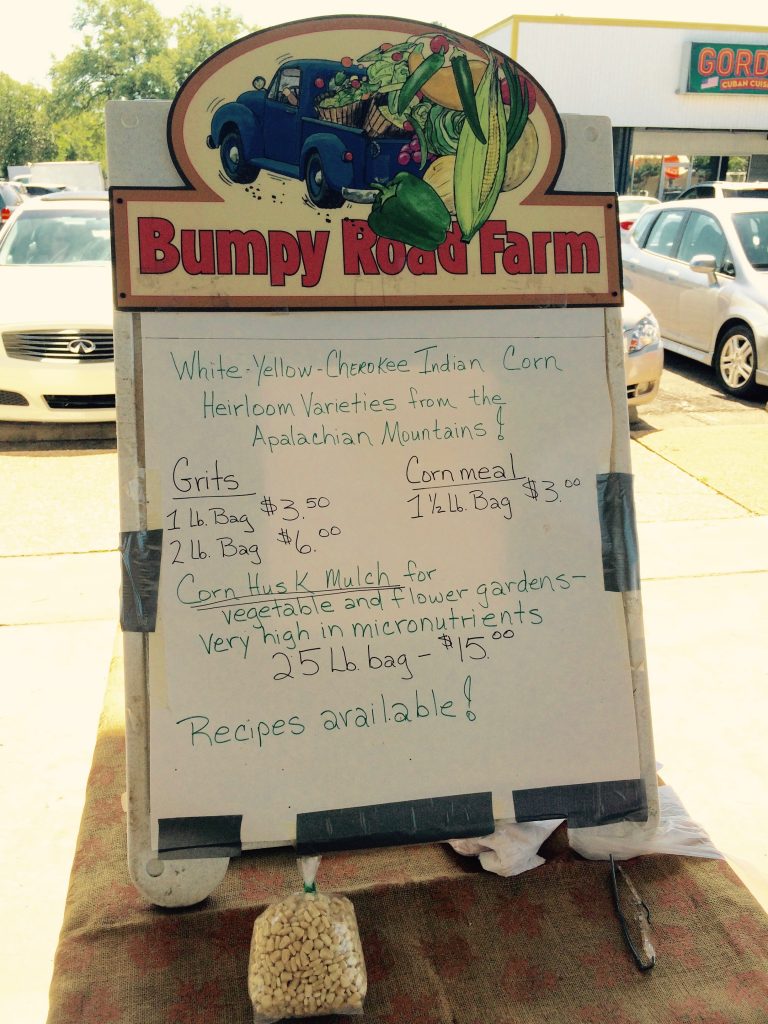 GORD
CUBAN CUIS
Bumpy Road Farm
White-Yellow-Cherokee Indian Corn
Heirloom Varieties from the
Apalachian Mountains!
Grits
1 Lb. Bag $3.50
2 Lb. Bag $6.00
Corn meal
1 1/2 Lb. Bag $3.00
Corn Husk Mulch for
vegetable and flower gardens-
very high in micronutrients
25 Lb. bag - $15.00
Recipes available!